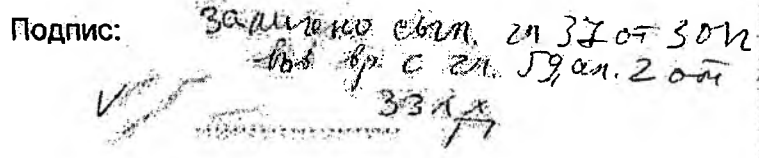 Подпис: Заличено съгл. чл 37 от ЗОП
във вр. с чл. 59, ал. 2 от
ЗЗЛД